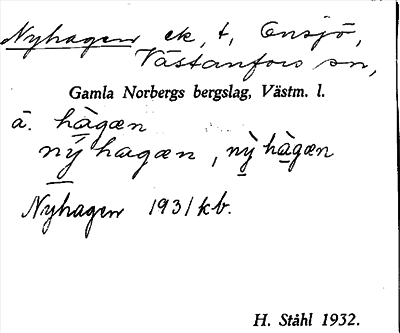 Nyhagen ek, t, Ensjö,
Västanfors sn,
Gamla Norbergs bergslag, Västm. l.
å. hàgæn
ný hagæn, nỳ hàgæn
Nyhagen 1931 kb.
H. Ståhl 1932.